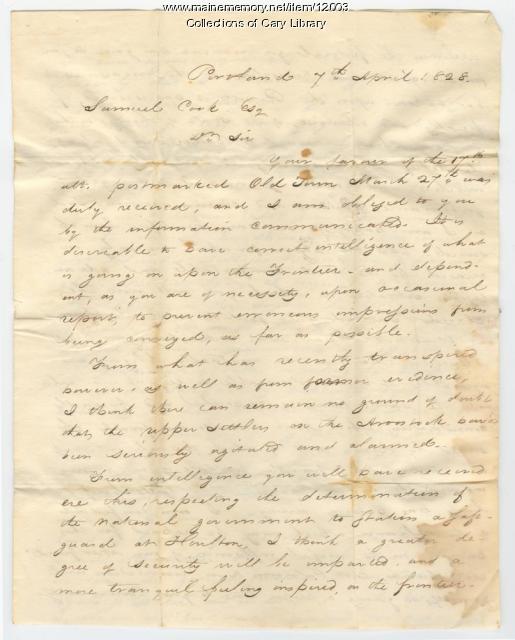 www.mainememory.net/item/12003
Collections of Cary Library
Portland 7th April 1828.
Samuel Cook Esq
Dr Sir
Your favour of the 17th
ult. postmarked Old Town March 27th was
duly received, and I am obliged to you
by the information communicated. It is
desireable to have correct intelligence of what
is going on upon the Frontier - and depend-
ent, as you are of necessity, upon occasional
report, to prevent erroneous impressions from
being conveyed, as far as possible.
From what has recently transpired
however, as well as from former evidence,
I think there can remain no ground of doubt
that the upper settlers on the Aroostook have
been seriously agitated and alarmed.
From intelligence you will have received
ere this, respecting the determination of
the national government to station a safe-
guard at Houlton, I think a greater de-
gree of security will be imparted, and a
more tranquil feeling inspired, on the frontier.